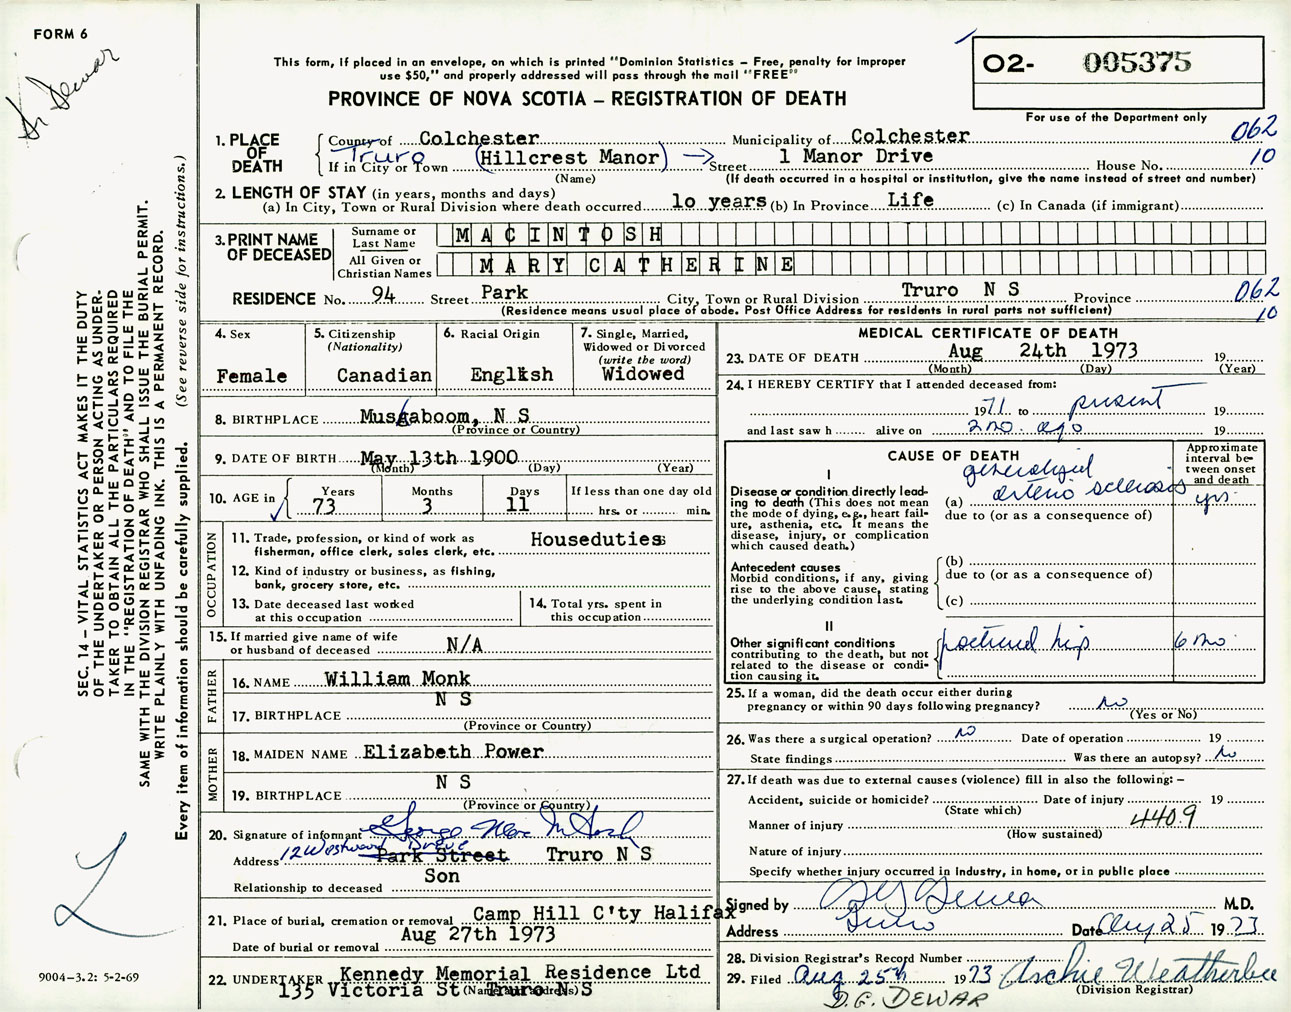 FORM 6
Dr Dewar
This form, if placed in an envelope, on which is printed "Dominion Statistics – Free, penalty for improper
use $50," and properly addressed will pass through the mail "FREE"
PROVINCE OF NOVA SCOTIA – REGISTRATION OF DEATH
02- 005375
For use of the Department only
SEC. 14 – VITAL STATISTICS ACT MAKES IT THE DUTY
OF THE UNDERTAKER OR PERSON ACTING AS UNDER-
TAKER TO OBTAIN ALL THE PARTICULARS REQUIRED
IN THE "REGISTRATION OF DEATH" AND TO FILE THE
SAME WITH THE DIVISION REGISTRAR WHO SHALL ISSUE THE BURIAL PERMIT.
WRITE PLAINLY WITH UNFADING INK. THIS IS A PERMANENT RECORD.
Every item of information should be carefully supplied. (See reverse side for instructions.)
1. PLACE OF DEATH
County of Colchester Municipality of Colchester 062
Truro
If in City or Town (Hillcrest Manor) → Street 1 Manor Drive House No. 10
(Name) (If death occurred in a hospital or institution, give the name instead of street and number)
2. LENGTH OF STAY (in years, months and days)
(a) In City, Town or Rural Division where death occurred 1o years (b) In Province Life (c) In Canada (if immigrant)
3. PRINT NAME OF DECEASED
Surname or Last Name MACINTOSH
All Given or Christian Names MARY CATHERINE
RESIDENCE No. 94 Street Park City, Town or Rural Division Truro N S Province 062
(Residence means usual place of abode. Post Office Address for residents in rural parts not sufficient) 10
4. Sex Female
5. Citizenship (Nationality) Canadian
6. Racial Origin English
7. Single, Married, Widowed or Divorced (write the word) Widowed
8. BIRTHPLACE Muskaboom, N S
(Province or Country)
9. DATE OF BIRTH May 13th 1900
(Month) (Day) (Year)
10. AGE in Years 73 Months 3 Days 11 If less than one day old hrs. or min.
OCCUPATION
11. Trade, profession, or kind of work as fisherman, office clerk, sales clerk, etc. Houseduties
12. Kind of industry or business, as fishing, bank, grocery store, etc.
13. Date deceased last worked at this occupation
14. Total yrs. spent in this occupation
15. If married give name of wife or husband of deceased N/A
FATHER
16. NAME William Monk
17. BIRTHPLACE N S
(Province or Country)
MOTHER
18. MAIDEN NAME Elizabeth Power
19. BIRTHPLACE N S
(Province or Country)
20. Signature of informant George
Address 12 Westwood Drive Park Street Truro N S
Relationship to deceased Son
21. Place of burial, cremation or removal Camp Hill C'ty Halifax
Date of burial or removal Aug 27th 1973
22. UNDERTAKER Kennedy Memorial Residence Ltd
135 Victoria St Truro N S
(Name and address)
MEDICAL CERTIFICATE OF DEATH
23. DATE OF DEATH Aug 24th 1973 19
(Month) (Day) (Year)
24. I HEREBY CERTIFY that I attended deceased from:
1971 to present 19
and last saw h alive on 2 mo. ago 19
CAUSE OF DEATH
Approximate interval between onset and death
I
Disease or condition directly leading to death (This does not mean the mode of dying, e.g., heart failure, asthenia, etc. It means the disease, injury, or complication which caused death.)
(a) generalized arterio sclerosis yrs.
due to (or as a consequence of)
Antecedent causes
Morbid conditions, if any, giving rise to the above cause, stating the underlying condition last.
(b)
due to (or as a consequence of)
(c)
II
Other significant conditions contributing to the death, but not related to the disease or condition causing it.
hip 6 mo.
25. If a woman, did the death occur either during pregnancy or within 90 days following pregnancy? no
(Yes or No)
26. Was there a surgical operation? no Date of operation 19
State findings Was there an autopsy? No
27. If death was due to external causes (violence) fill in also the following: –
Accident, suicide or homicide? Date of injury 19
(State which)
Manner of injury 4409
(How sustained)
Nature of injury
Specify whether injury occurred in industry, in home, or in public place
Signed by Dewar M.D.
Address Truro Date Aug 25 1973
28. Division Registrar's Record Number
29. Filed Aug 25th 1973 Archie Weatherbee
(Division Registrar)
D.G. DEWAR
9004-3.2: 5-2-69